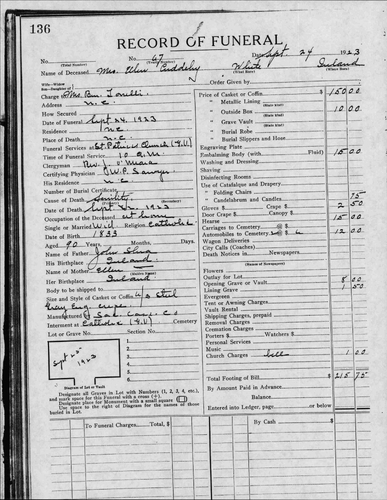 136
RECORD OF FUNERAL
No. 67 Date Sept 24 1923
(Total Number) (Yearly Number)
Name of Deceased Mrs. Ellen White Ireland
(What Race) (Where Born)
Charge to Mrs. Ben Order Given by
Address N.C.
How Secured
Date of Funeral Sept 24, 1923
Residence N.C.
Place of Death N.C.
Funeral Services at St. Patrick's Church (G.V.)
Time of Funeral Service 10 A.M.
Clergyman Rev. J. O'Meara
Certifying Physician W.P. Sawyer
His Residence N.C.
Number of Burial Certificate
Cause of Death Senility
Date of Death Sept 1923
Occupation of the Deceased at home
Single or Married Wid. Religion Catholic
Date of Birth 1833
Aged 90 Years Months, Days
Name of Father John
His Birthplace Ireland
Name of Mother Ellen
Her Birthplace Ireland
Body to be shipped to
Size and Style of Casket or Coffin
Manufactured by
Interment at Catholic (G.V.) Cemetery
Lot or Grave No. Section No.
Sept 25 1923
1 2 3 4
Diagram of Lot or Vault
Designate all Graves in Lot with Numbers (1, 2, 3, 4, etc.), and mark space for this Funeral with a cross (+).
Designate place for Monument with a small square
Use space to right of Diagram for the names of those buried in Lot.
Price of Casket or Coffin $ 150 00
" Metallic Lining
" Outside Box 10 00
" Grave Vault
" Burial Robe
" Burial Slippers and Hose
Engraving Plate
Embalming Body (with Fluid) 15 00
Washing and Dressing
Shaving
Disinfecting Rooms
Use of Catafalque and Drapery
" Folding Chairs 75
" Candelabrum and Candles
Gloves $ Crape $ 2 50
Door Crape Canopy $
Hearse 15 00
Carriages to Cemetery @ $
Automobiles to Cemetery @ $ 12 00
Wagon Deliveries
City Calls (Coaches)
Death Notices in Newspapers
(Names of Newspapers)
Flowers
Outlay for Lot
Opening Grave or Vault 8 00
Lining Grave 1 50
Evergreen
Tent or Awning Charges
Vault Rental
Shipping Charges, prepaid
Removal Charges
Cremation Charges
Porters $ Watchers $
Personal Services
Music
Church Charges bell 1 00
Total Footing of Bill $ 215 75
By Amount Paid in Advance
Balance
Entered into Ledger, page or below
To Funeral Charges, Total, $ By Cash $